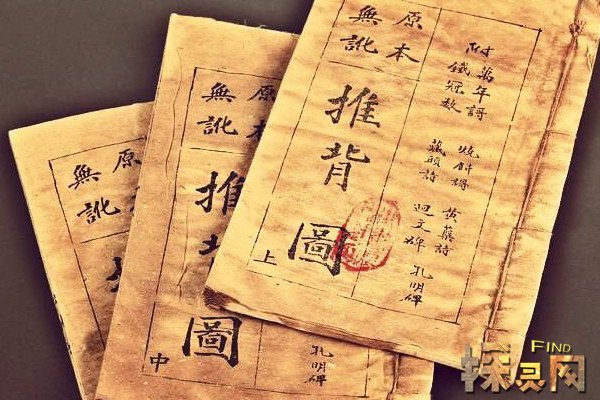 附
萬年謌
鐵冠數
燒餅謌
藏頭詩
黃蘗詩
迴文碑
孔明碑
原本
無訛
推背圖
上
原本
無訛
推背圖
中
孔明碑
原本
無訛
FIND
探灵网